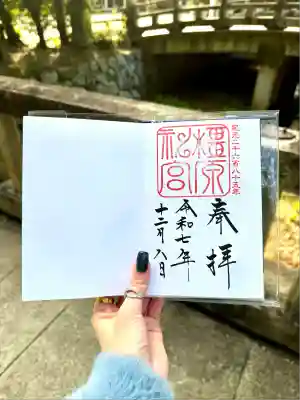 皇紀二千六百八十五年
奉拝
橿原神宮
令和七年
十二月八日